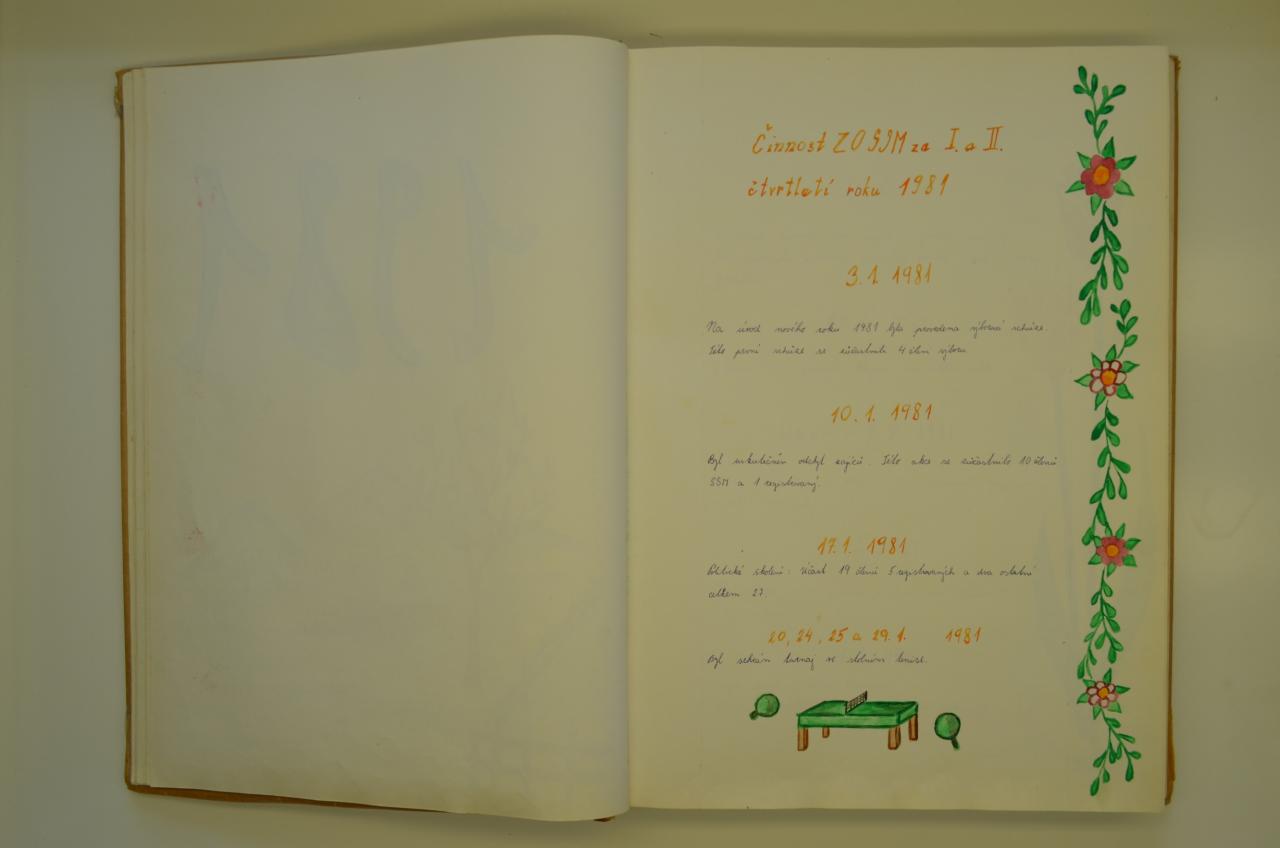 Činnost ZO SSM za I. a II.
čtvrtletí roku 1981
3. 1. 1981
Na úvod nového roku 1981 byla provedena výborová schůze.
Této první schůze se zúčastnili 4 členi výboru
10. 1. 1981
Byl uskutečněn odchyt zajíců. Této akce se zúčastnilo 10 členů
SSM a 1 registrovaný.
17. 1. 1981
Politické školení: Účast 19 členů 5 registrovaných a dva ostatní
celkem 27.
20, 24, 25 a 29. 1. 1981
Byl sehrán turnaj ve stolním tenise.